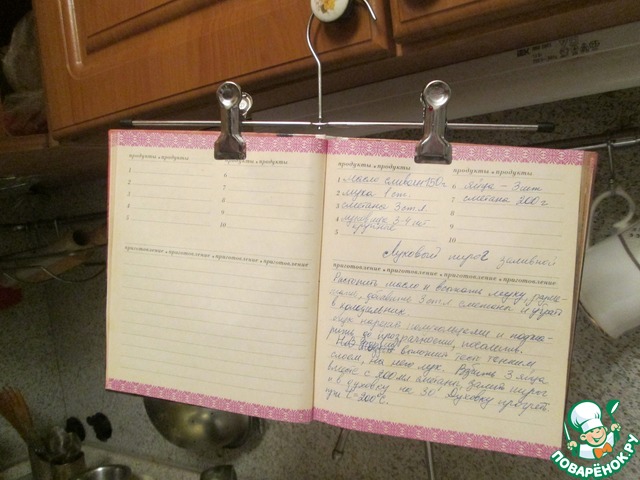 продукты • продукты продукты • продукты
1
2
3
4
5
6
7
8
9
10
приготовление • приготовление • приготовление • приготовление
продукты • продукты продукты • продукты
1 масло сливочн 150 г
2 мука 1 ст.
3 сметана 3 ст.л.
4 луковица 3-4 шт
крупные
5
6 яйца - 3 шт.
7 сметана 200 г
8
9
10
Луковый пирог заливной
приготовление • приготовление • приготовление • приготовление
Растопить масло и всыпать муку,
добавить 3 ст.л сметаны и убрать
в холодильник.
Лук нарезать полукольцами и поджа-
рить до прозрачности, посолить.
На выложить тесто тонким
слоем, на него лук. Взбить 3 яйца
вместе с 200 мл сметаны, залить пирог
и в духовку на 30'. Духовку прогреть
при t=200°C.
ПОВАРЁНОК.РУ